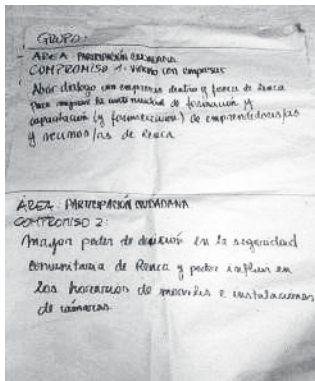 GRUPO:
- ÁREA: PARTICIPACIÓN CIUDADANA
COMPROMISO 1: Vínculo con empresas
Abrir diálogo con empresas dentro y fuera de Renca
para mejorar la de formación y
capacitación (y formalización) de emprendedores/as
y vecinos/as de Renca
ÁREA: PARTICIPACIÓN CIUDADANA
COMPROMISO 2:
Mayor poder de decisión en la seguridad
comunitaria de Renca y poder influir en
los horarios de móviles e instalaciones
de cámaras.